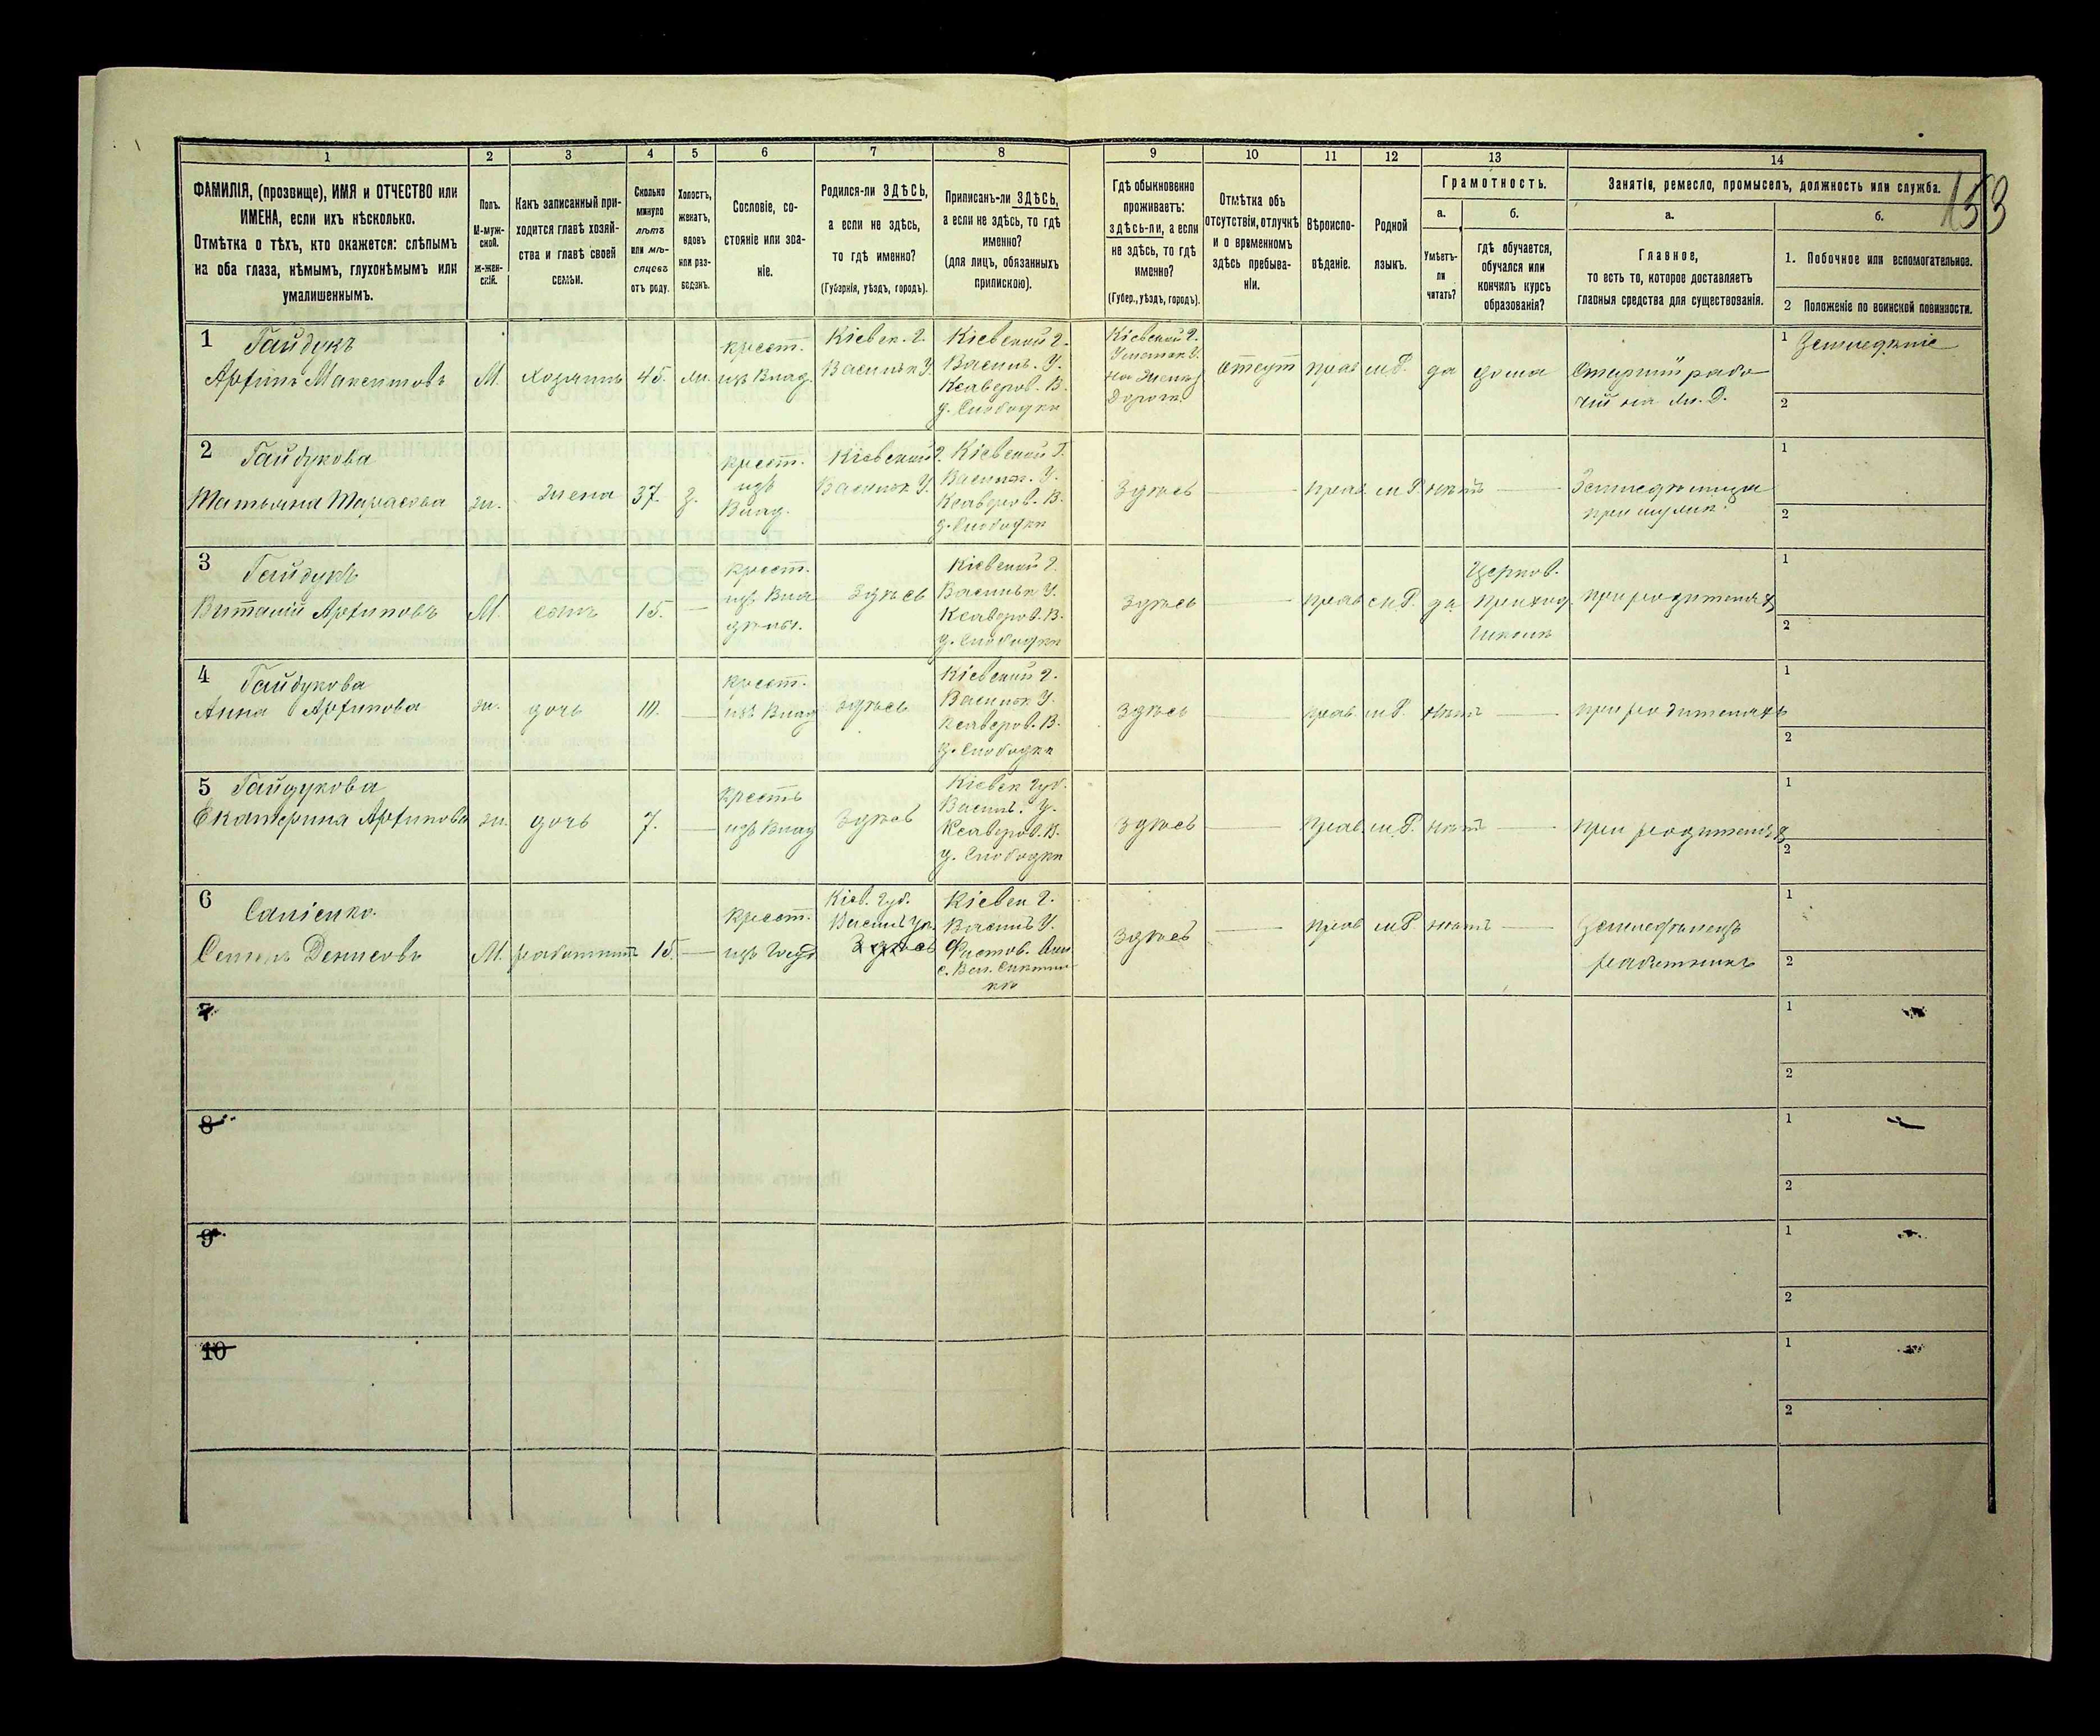 153
1 2 3 4 5 6 7 8 9 10 11 12 13 14
ФАМИЛІЯ, (прозвище), ИМЯ и ОТЧЕСТВО или
ИМЕНА, если ихъ нѣсколько.
Отмѣтка о тѣхъ, кто окажется: слѣпымъ
на оба глаза, нѣмымъ, глухонѣмымъ или
умалишеннымъ.
Полъ.
М-муж-
ской.
ж-жен-
скій.
Какъ записанный при-
ходится главѣ хозяй-
ства и главѣ своей
семьи.
Сколько
минуло
лѣтъ
или мѣ-
сяцевъ
отъ роду.
Холостъ,
женатъ,
вдовъ
или раз-
веденъ.
Сословіе, со-
стояніе или зва-
ніе.
Родился-ли ЗДѢСЬ,
а если не здѣсь,
то гдѣ именно?
(Губернія, уѣздъ, городъ).
Приписанъ-ли ЗДѢСЬ,
а если не здѣсь, то гдѣ
именно?
(для лицъ, обязанныхъ
припискою).
Гдѣ обыкновенно
проживаетъ:
здѣсь-ли, а если
не здѣсь, то гдѣ
именно?
(Губер., уѣздъ, городъ).
Отмѣтка объ
отсутствіи, отлучкѣ
и о временномъ
здѣсь пребыва-
ніи.
Вѣроиспо-
вѣданіе.
Родной
языкъ.
Грамотность.
а.
Умѣетъ-
ли
читать?
б.
гдѣ обучается,
обучался или
кончилъ курсъ
образованія?
Занятіе, ремесло, промыселъ, должность или служба.
а.
Главное,
то есть то, которое доставляетъ
главныя средства для существованія.
б.
1. Побочное или вспомогательное.
2 Положеніе по воинской повинности.
1 Гайдукъ
Архипъ Максимовъ
М.
хозяинъ
45.
крест.
изъ Влад.
Кіевск. г.
Васильк У.
Кіевской г.
Василь. У.
Ксаверов. В.
д. Слободка
Кіевской г.
отсут
прав
м Р.
да
дома
Старшій рабо-
чій на
1 Земледѣліе
2
2 Гайдукова
Татьяна Тарасова
ж.
жена
37.
з.
крест.
изъ
Влад.
Кіевской г.
Васильк У.
Кіевской Г.
Васильк. У.
Ксаверов. В.
д. Слободка
Здѣсь
прав.
м Р.
нѣтъ
1
2
3 Гайдукъ
Виталій Архиповъ
М.
сынъ
15.
крест.
изъ Вла
дѣльч.
Здѣсь
Кіевской г.
Васильк У.
Ксаверов. В.
д. Слободка
Здѣсь
прав
м Р.
да
Церков.
Приход.
Школа
при родителях
1
2
4 Гайдукова
Анна Архипова
ж.
дочь
крест.
изъ Влад
здѣсь
Кіевской г.
Васильк У.
Ксаверов. В.
д. Слободка
Здѣсь
прав.
м Р.
нѣтъ
при родителяхъ
1
2
5 Гайдукова
Екатерина Архипова
ж.
дочь
7.
крестъ
изъ Влад
Здѣсь
Кіевск губ.
Василь. У.
Ксаверов. В.
д. Слободка
Здѣсь
Прав.
м Р.
нѣтъ
при родителях
1
2
6 Сапіенко
Семенъ Денисовъ
М.
работникъ
15.
крест.
Кіев. губ.
Васильк Уѣ.
Здѣсь
Кіевск г.
Василь У.
Здѣсь
прав
м Р.
нѣтъ
Земледѣлецъ
работникъ
1
2
7
1
2
8
1
2
9
1
2
10
1
2